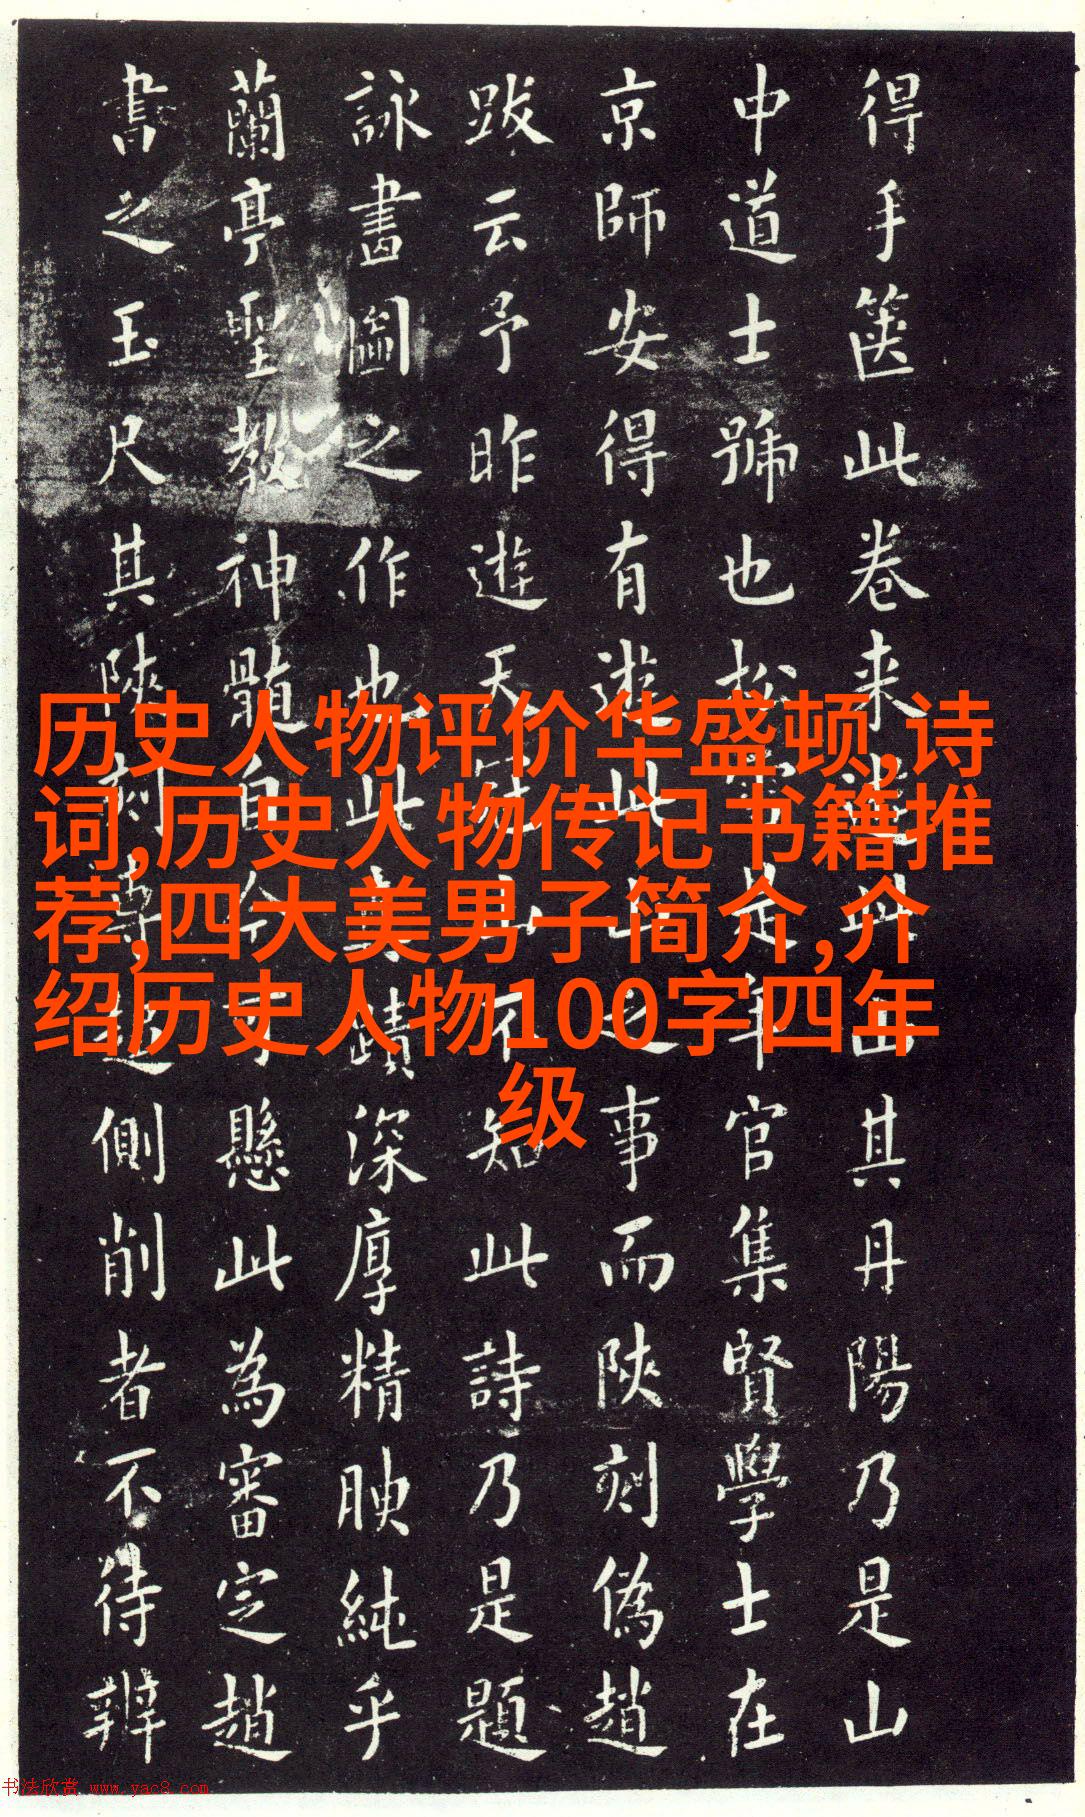 历史人物评价华盛顿,诗
词,历史人物传记书籍推
荐,四大美男子简介,介
绍历史人物100字四年
级
得手箧此卷来其丹陽乃是山
中道士號也松是年官集賢學士在
京師安得有遊此之事而陝刻偽趙
跋云予昨遊天不知此詩乃是題
詠畫圖之作也此蹟深厚精腴純乎
蘭亭聖教神髓自今可懸此為審定趙
書之玉尺其陝刻專趨側削者不待辨
书法欣赏 www.yac8.com